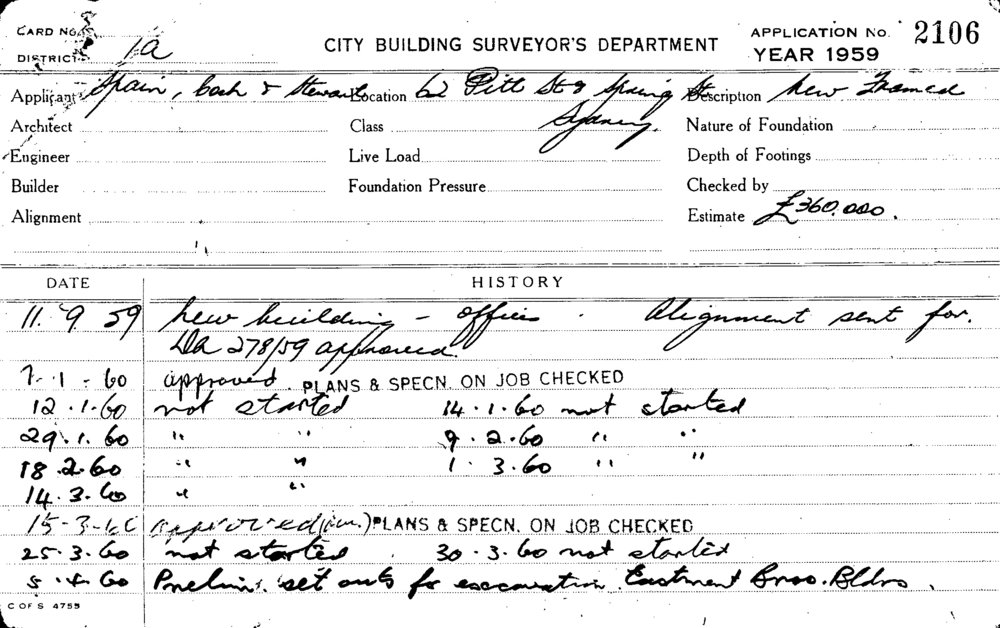 CARD NO.
DISTRICT 1a
CITY BUILDING SURVEYOR'S DEPARTMENT
APPLICATION No. 2106
YEAR 1959
Applicant Spain, Cosh & Stewart Location 62 Pitt St & Spring St Description New Framed
Sydney.
Architect Class Nature of Foundation
Engineer Live Load Depth of Footings
Builder Foundation Pressure Checked by
Alignment Estimate £360,000.
DATE HISTORY
11. 9. 59 New building - offices. Alignment sent for.
Da 278/59 approved.
7-1-60 approved. PLANS & SPECN. ON JOB CHECKED
12.1.60 not started 14.1.60 not started
29.1.60 " " 9.2.60 " "
18.2.60 " " 1.3.60 " "
14.3.60 " "
15-3-60 approved PLANS & SPECN. ON JOB CHECKED
25.3.60 not started. 30.3.60 not started
5.4.60 Prelim. set outs for excavation. Eastment Bros. Bldrs.
C OF S 4755